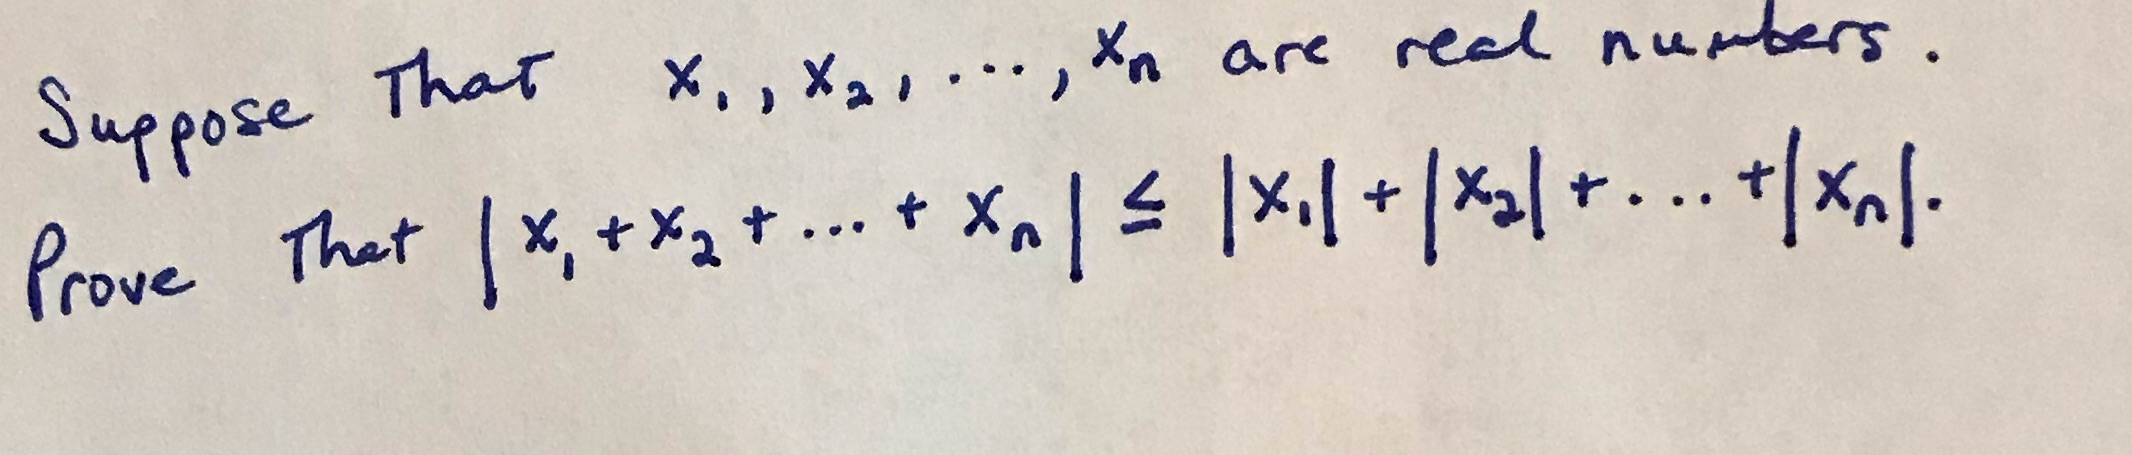 Suppose that x₁, x₂, ..., xₙ are real numbers.
Prove that |x₁ + x₂ + ... + xₙ| ≤ |x₁| + |x₂| + ... + |xₙ|.